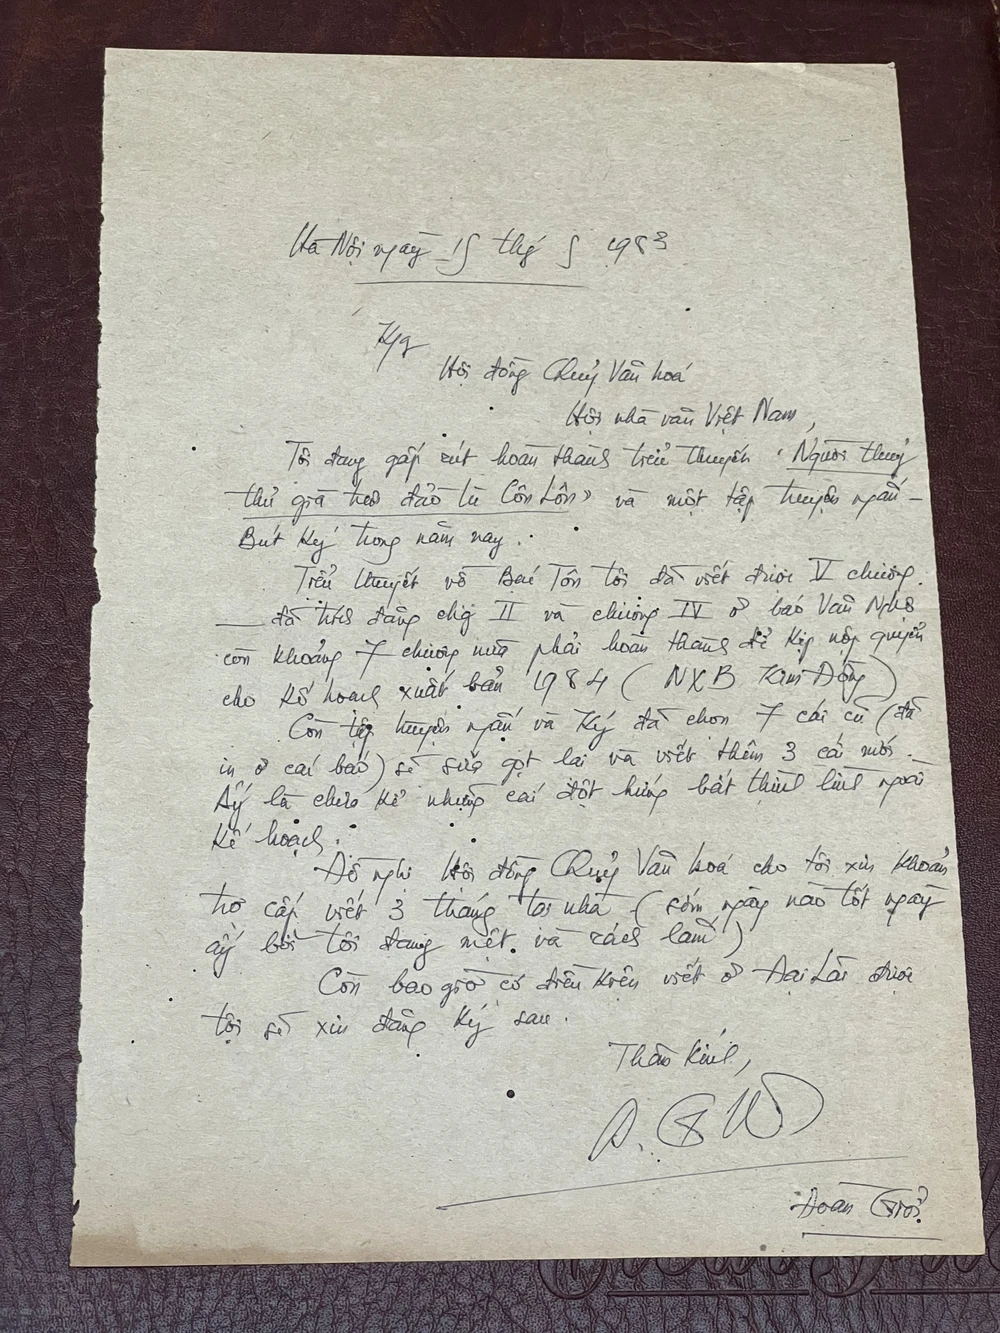 Hà Nội ngày 15 thg 5 1983
Kg
Hội đồng Quỹ Văn hoá
Hội nhà văn Việt Nam,
Tôi đang gấp rút hoàn thành tiểu thuyết "Người thuỷ
thủ già trên đảo lù Côn Lôn" và một tập truyện ngắn –
Bút Ký trong năm nay.
Tiểu thuyết về Bác Tôn tôi đã viết được V chương.
đã trích đăng chg II và chương IV ở báo Văn Nghệ
còn khoảng 7 chương nữa phải hoàn thành để kịp nộp quyển
cho kế hoạch xuất bản 1984 (NXB Kim Đồng)
Còn tập truyện ngắn và Ký đã chọn 7 cái cũ (đã
in ở các báo) sẽ sửa gọt lại và viết thêm 3 cái mới.
Ấy là chưa kể những cái đột hứng bất thình lình ngoài
kế hoạch.
Đề nghị Hội đồng Quỹ Văn hoá cho tôi xin khoản
trợ cấp viết 3 tháng tại nhà (sớm ngày nào tốt ngày
ấy bởi tôi đang mệt và rách lắm)
Còn bao giờ có điều kiện viết ở Đại Lải được
tôi sẽ xin đăng ký sau.
Thân kính,
Đoàn Giỏi